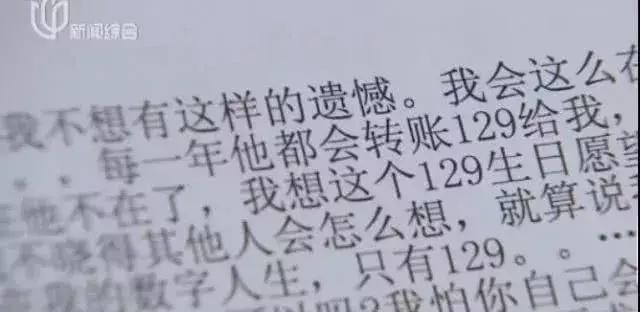 新闻综合
我不想有这样的遗憾。我会这么在
。。每一年他都会转账129给我,
他不在了,我想这个129生日愿望
不晓得其他人会怎么想,就算说
我的数字人生,只有129。。...
吗?我怕你自己会